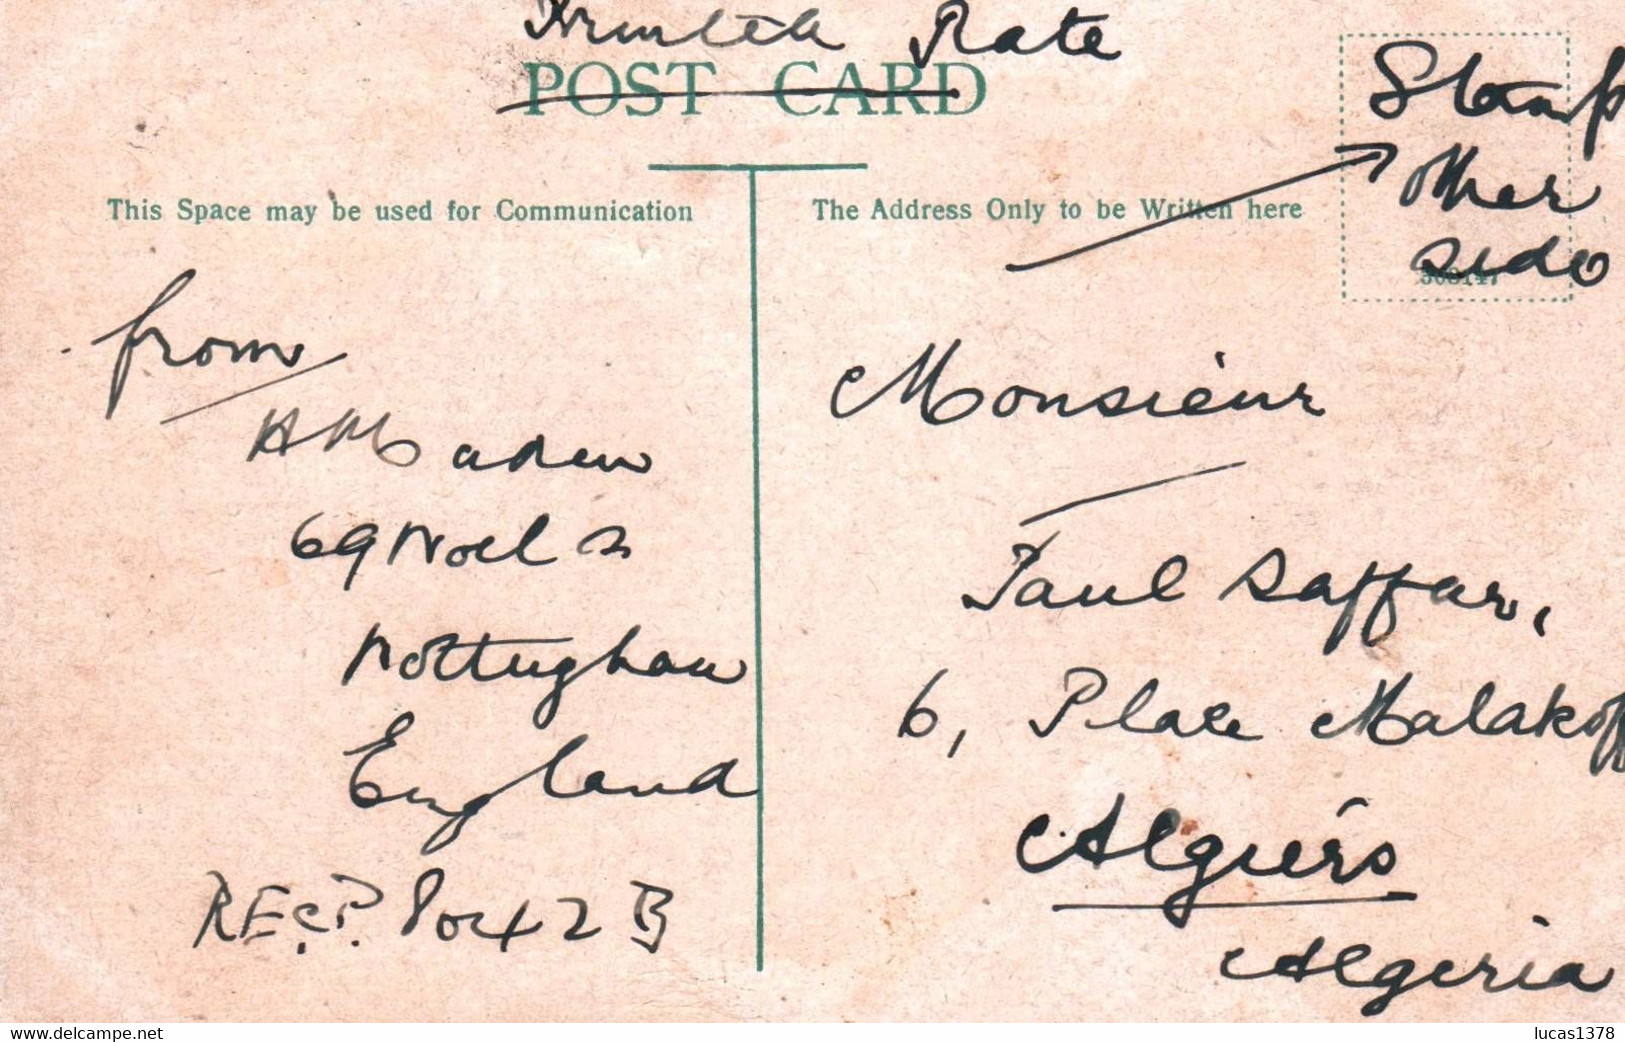 Printed Rate
POST CARD
Stamp
other
side
This Space may be used for Communication
The Address Only to be Written here
from
H Maden
69 Noel S
Nottingham
England
REc.P. 8042 B
Monsieur
Paul Saffar,
6, Place Malakoff
Algiers
Algeria
www.delcampe.net
lucas1378